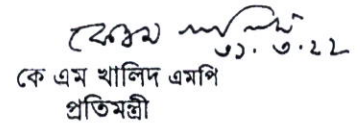 ৩১.৩.২২
কে এম খালিদ এমপি
প্রতিমন্ত্রী